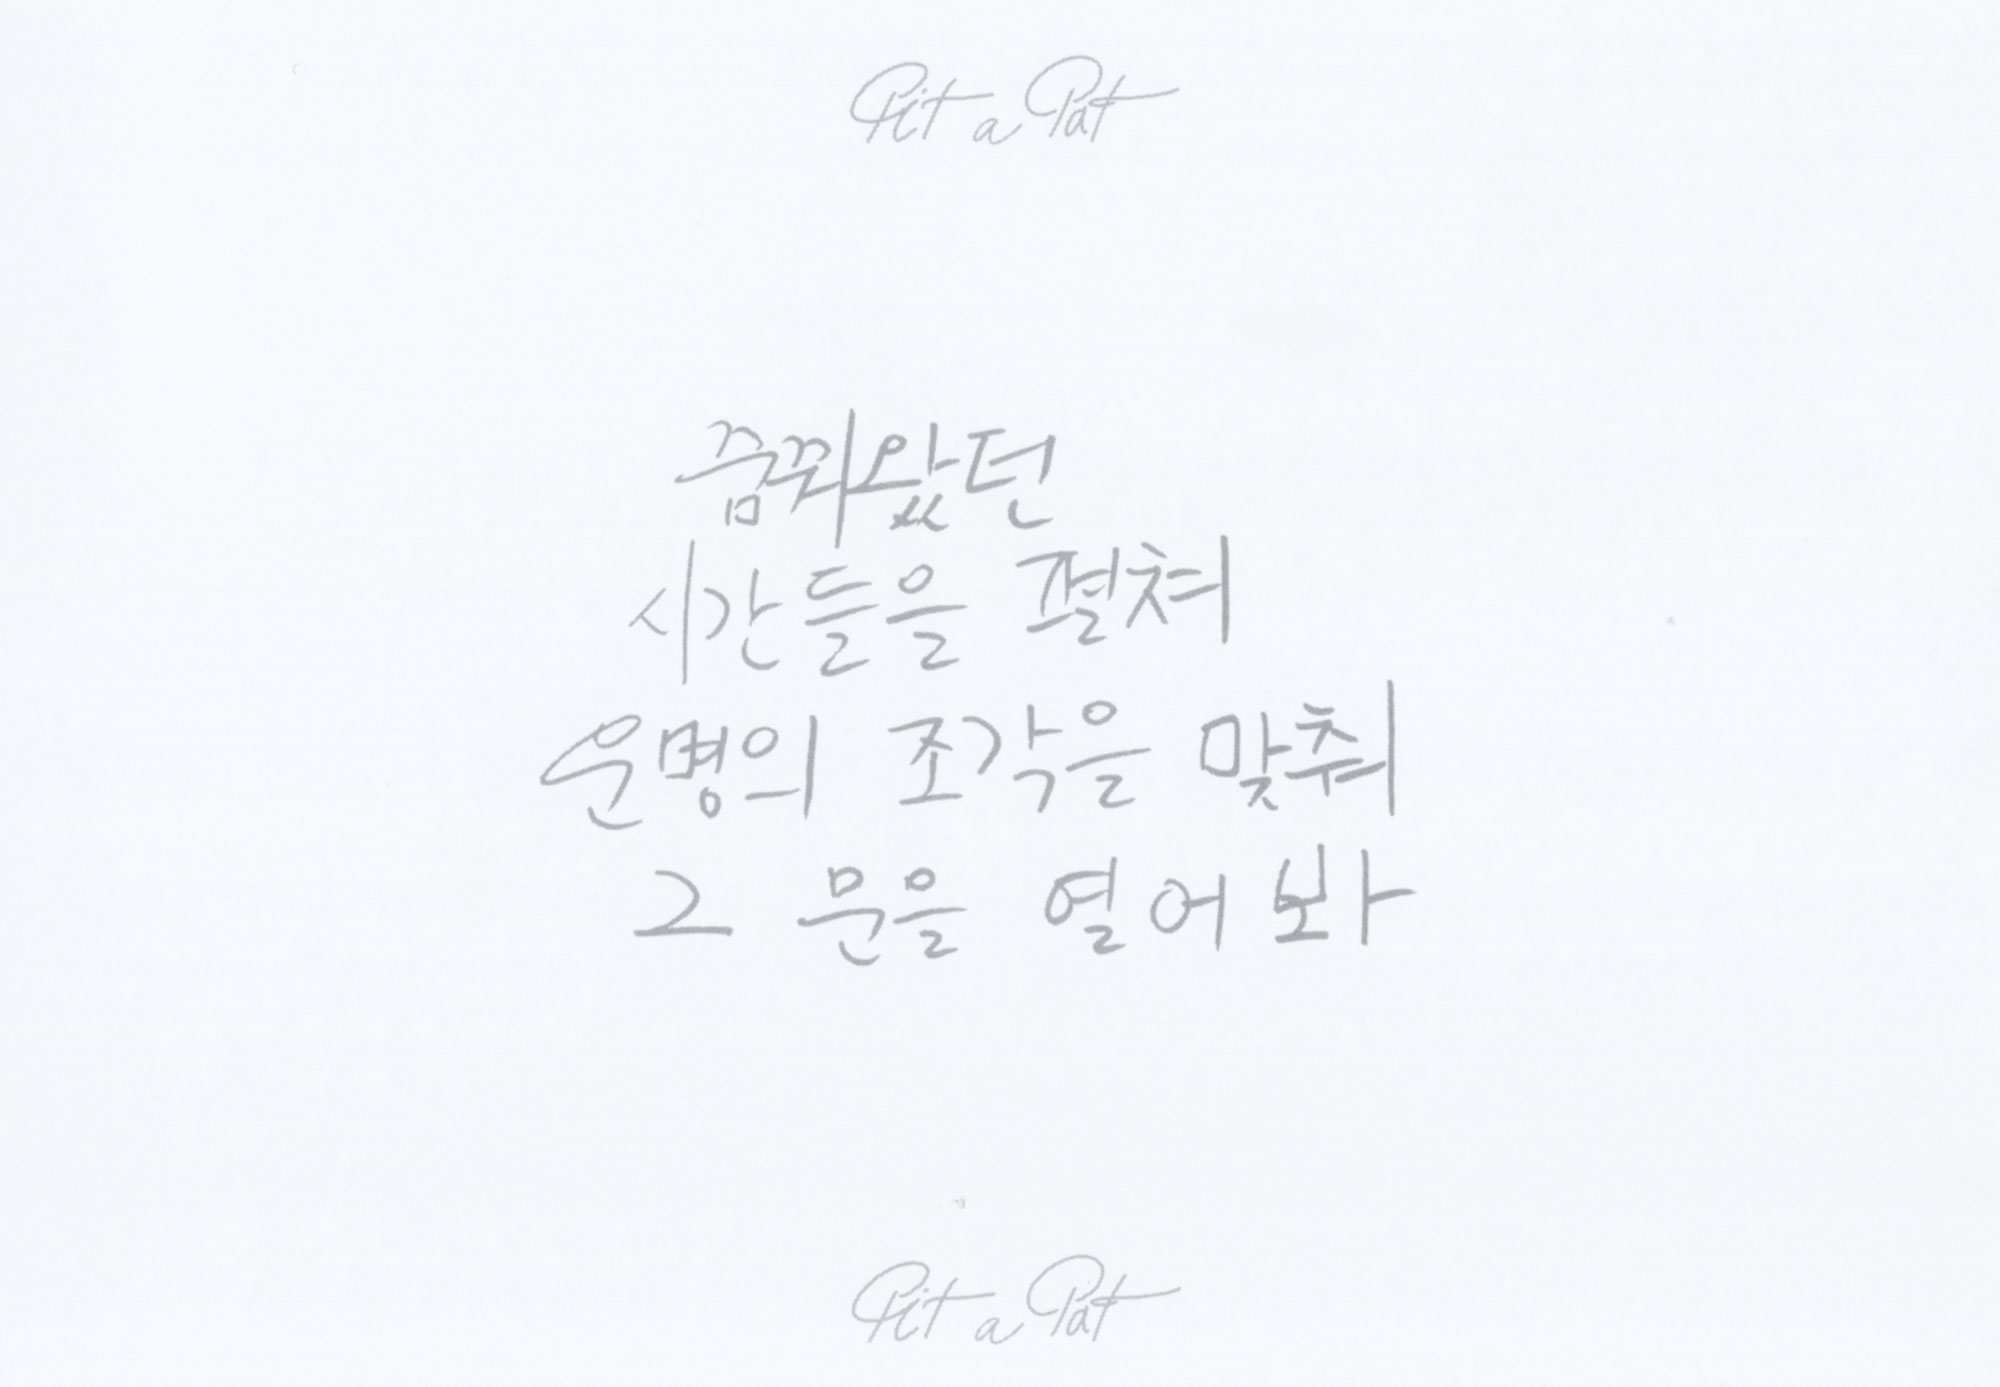 Pit a Pat
꿈꿔왔던
시간들을 펼쳐
운명의 조각을 맞춰
그 문을 열어 봐
Pit a Pat